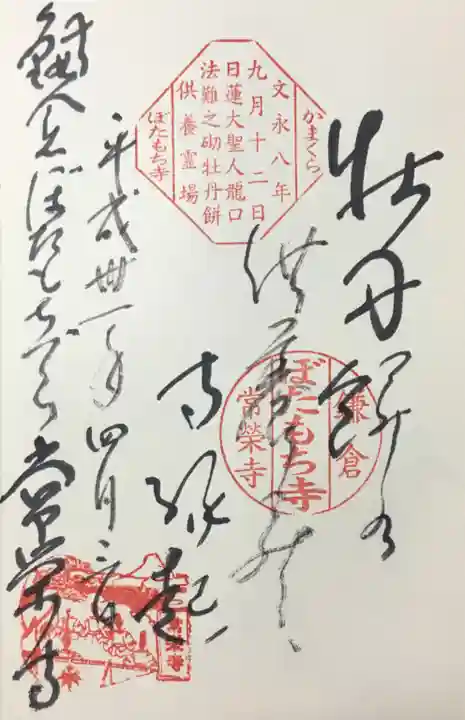 かまくら
文永八年
九月十二日
日蓮大聖人龍口
法難之砌牡丹餅
供養霊場
ぼたもち寺
牡丹餅の
供養
寺縁起
鎌倉
ぼたもち寺
常榮寺
平成卅一年四月三日
鎌倉ぼたもちでら常榮寺
常榮寺